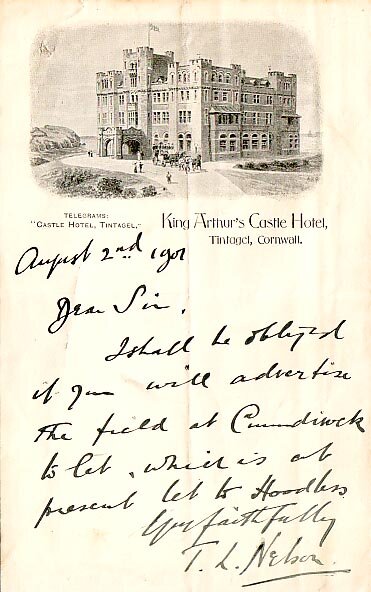 TELEGRAMS:
"CASTLE HOTEL, TINTAGEL."
King Arthur's Castle Hotel,
Tintagel, Cornwall.
August 2nd 1901
Dear Sir,
I shall be obliged
if you will advertise
the field at
to let, which is at
present let to Hoodless
Yrs faithfully
T. L. Nelson.